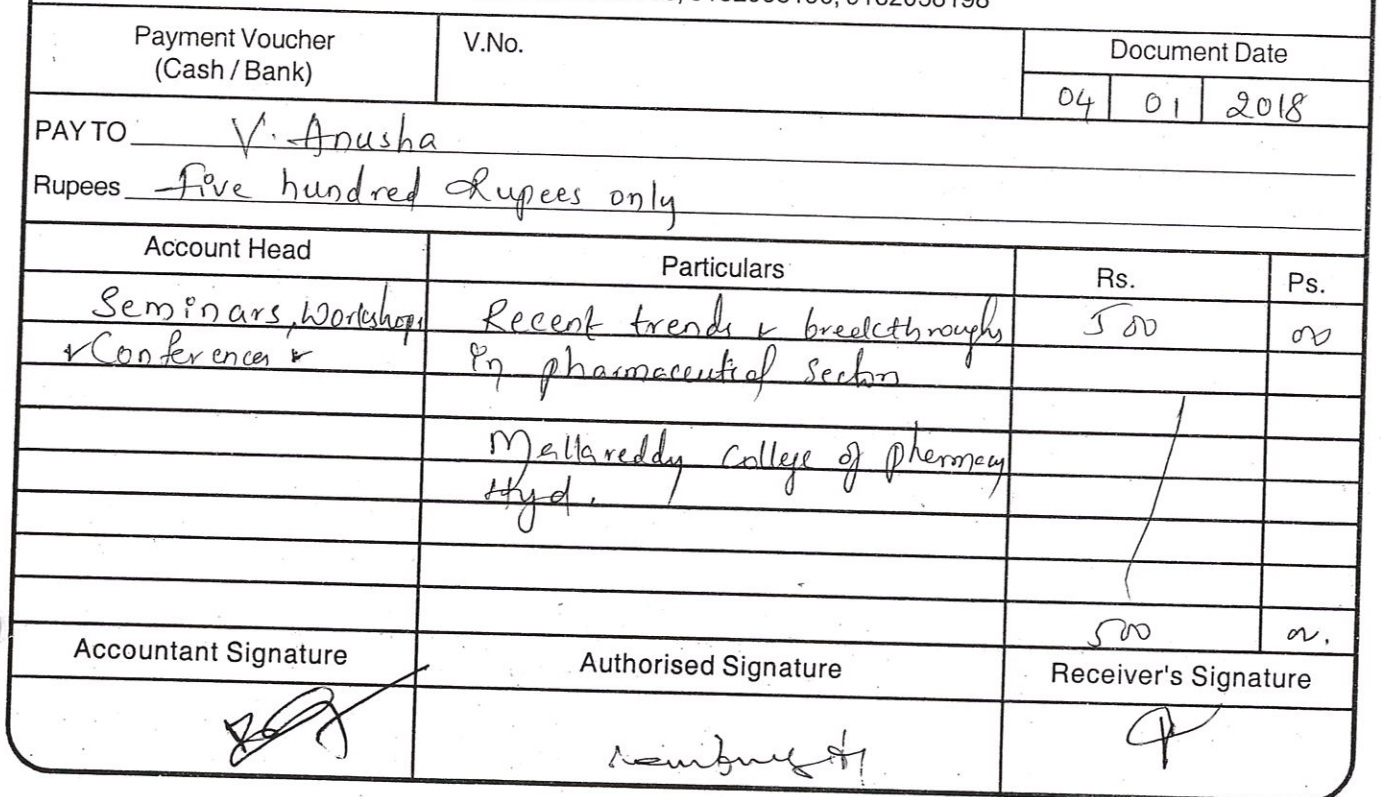 Payment Voucher
(Cash / Bank)
V.No.
Document Date
04 01 2018
PAY TO V. Anusha
Rupees five hundred Rupees only
Account Head Particulars Rs. Ps.
Seminars, Workshops Recent trends & breakthroughs 500 00
& Conferences in pharmaceutical Sector
Mallareddy College of pharmacy
Hyd.
500 00.
Accountant Signature Authorised Signature Receiver's Signature